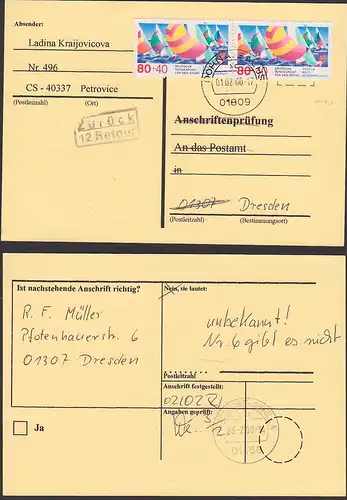 Absender:
Ladina Kraijovicova
Nr. 496
CS - 40337 Petrovice
(Postleitzahl) (Ort)
Zurück
12 Retour
80+40 DEUTSCHE BUNDESPOST FÜR DEN SPORT
80 DEUTSCHE BUNDESPOST FÜR DEN SPORT
01809
Anschriftenprüfung
An das Postamt
in
01307 Dresden
(Postleitzahl) (Bestimmungsort)
Ist nachstehende Anschrift richtig?
R. F. Müller
Pfotenhauerstr. 6
01307 Dresden
Ja
Nein, sie lautet:
unbekannt!
Nr. 6 gibt es nicht
Postleitzahl
Anschrift festgestellt:
Angaben geprüft: